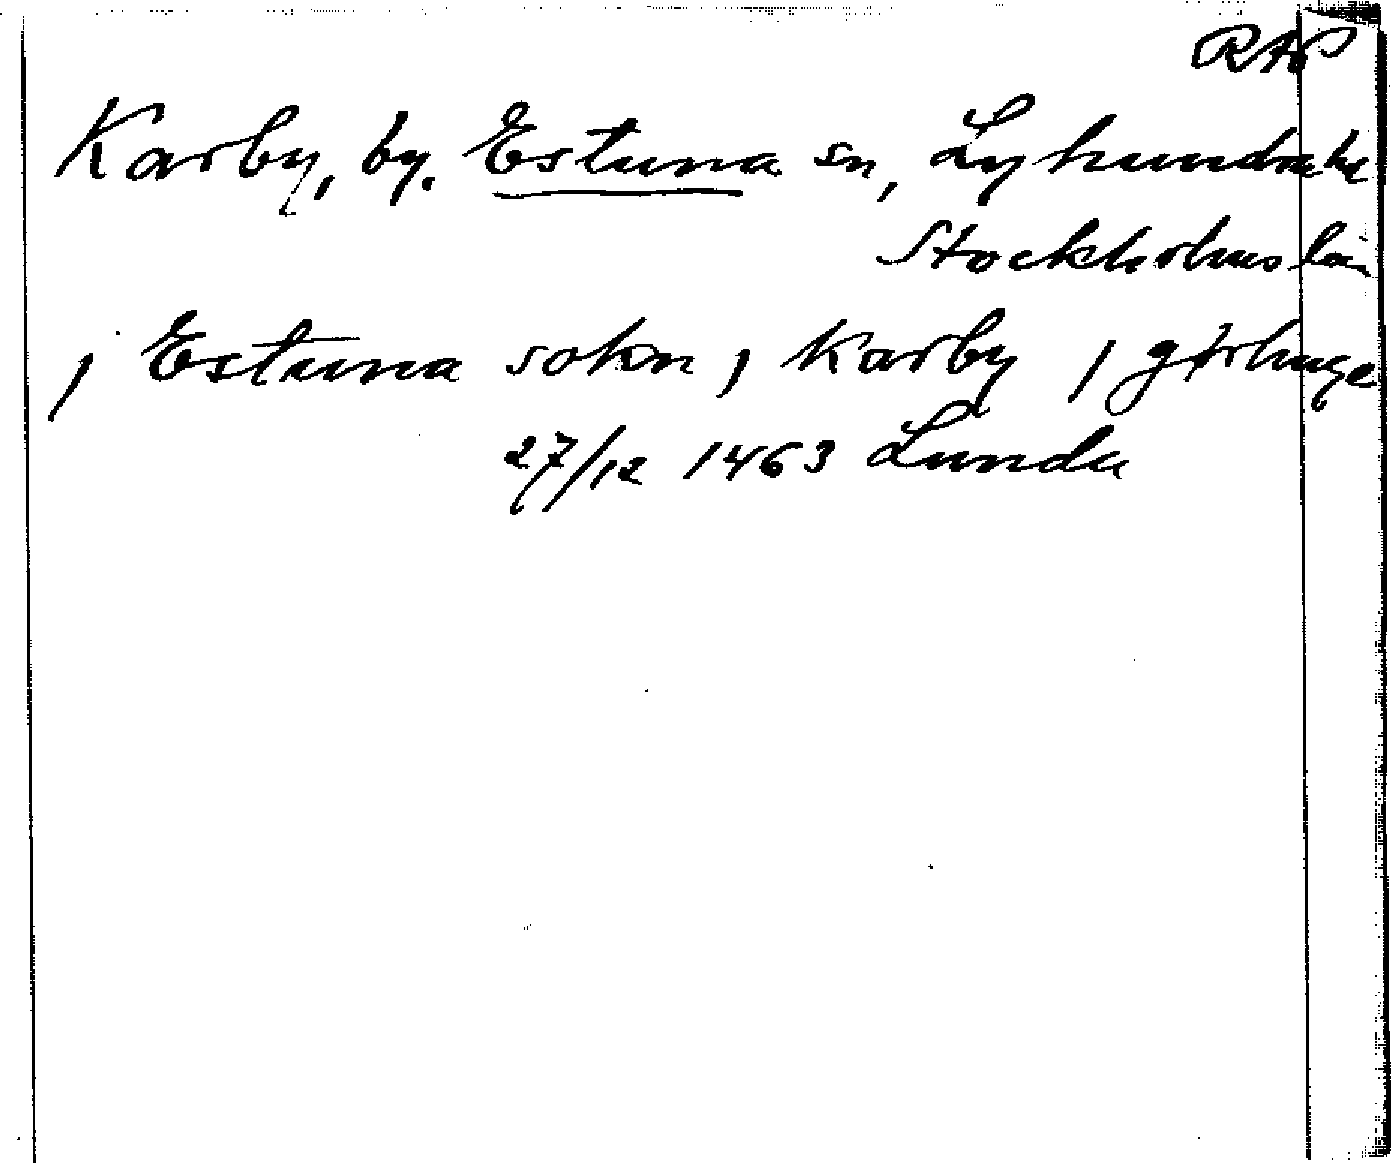 RAP
Karby, by. Estuna sn, Lyhundra hd
Stockholms län
j Estuna sokn j Karby j gørlinge
27/12 1463 Lunda